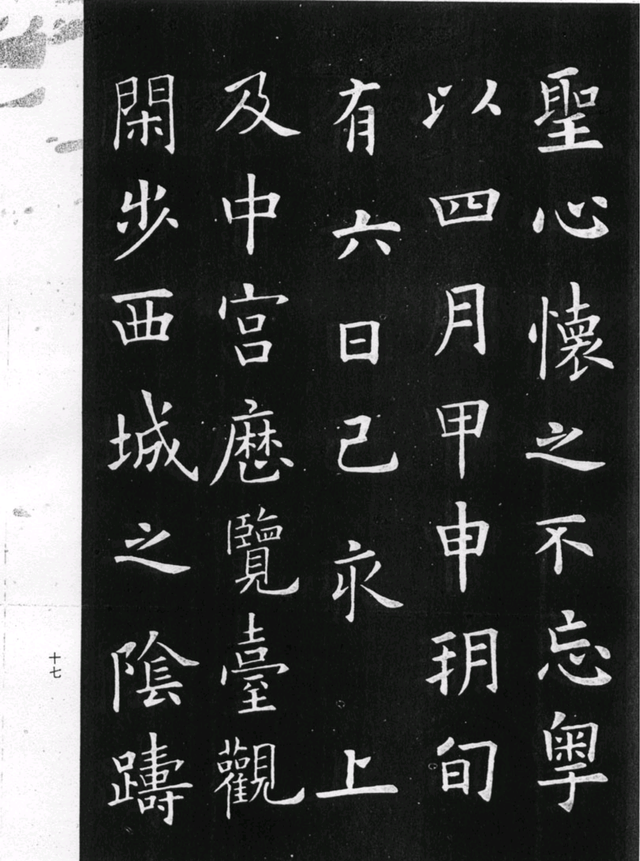 聖心懷之不忘粵
以四月甲申朔旬
有六日己亥上
及中宮歷覽臺觀
閑步西城之陰躊
十七